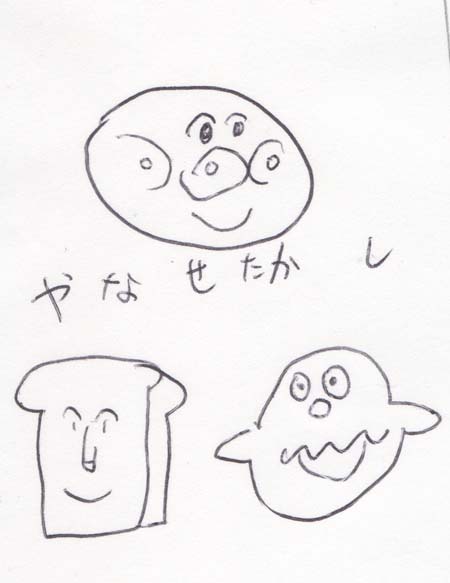 やなせたかし